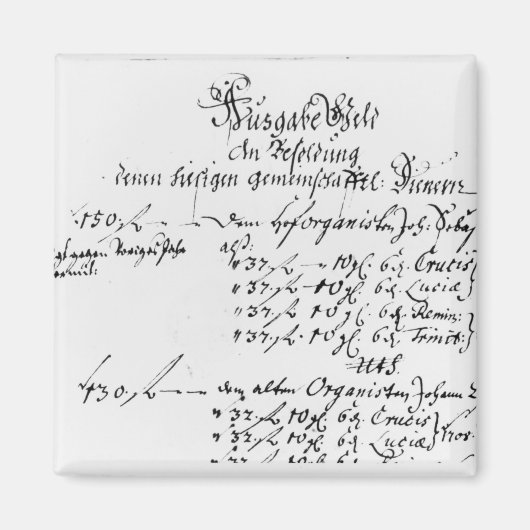 Ausgabe Geld
An Besoldung
denen hiesigen gemeinschafftl: Dienern
150. fl — — dem Hoforganisten Joh: Sebas
gegen voriges Jahr
als:
" 37. fl — 10 gl. 6 d. Crucis
" 37. fl — 10 gl. 6 d. Luciæ
" 37. fl 10 gl. 6 d. Remin:
" 37. fl 10 gl. 6 d. Trinit:
uts.
130. fl — — dem alten Organisten Johann
" 32. fl 10 gl. 6 d. Crucis
" 32. fl 10 gl. 6 d. Luciæ